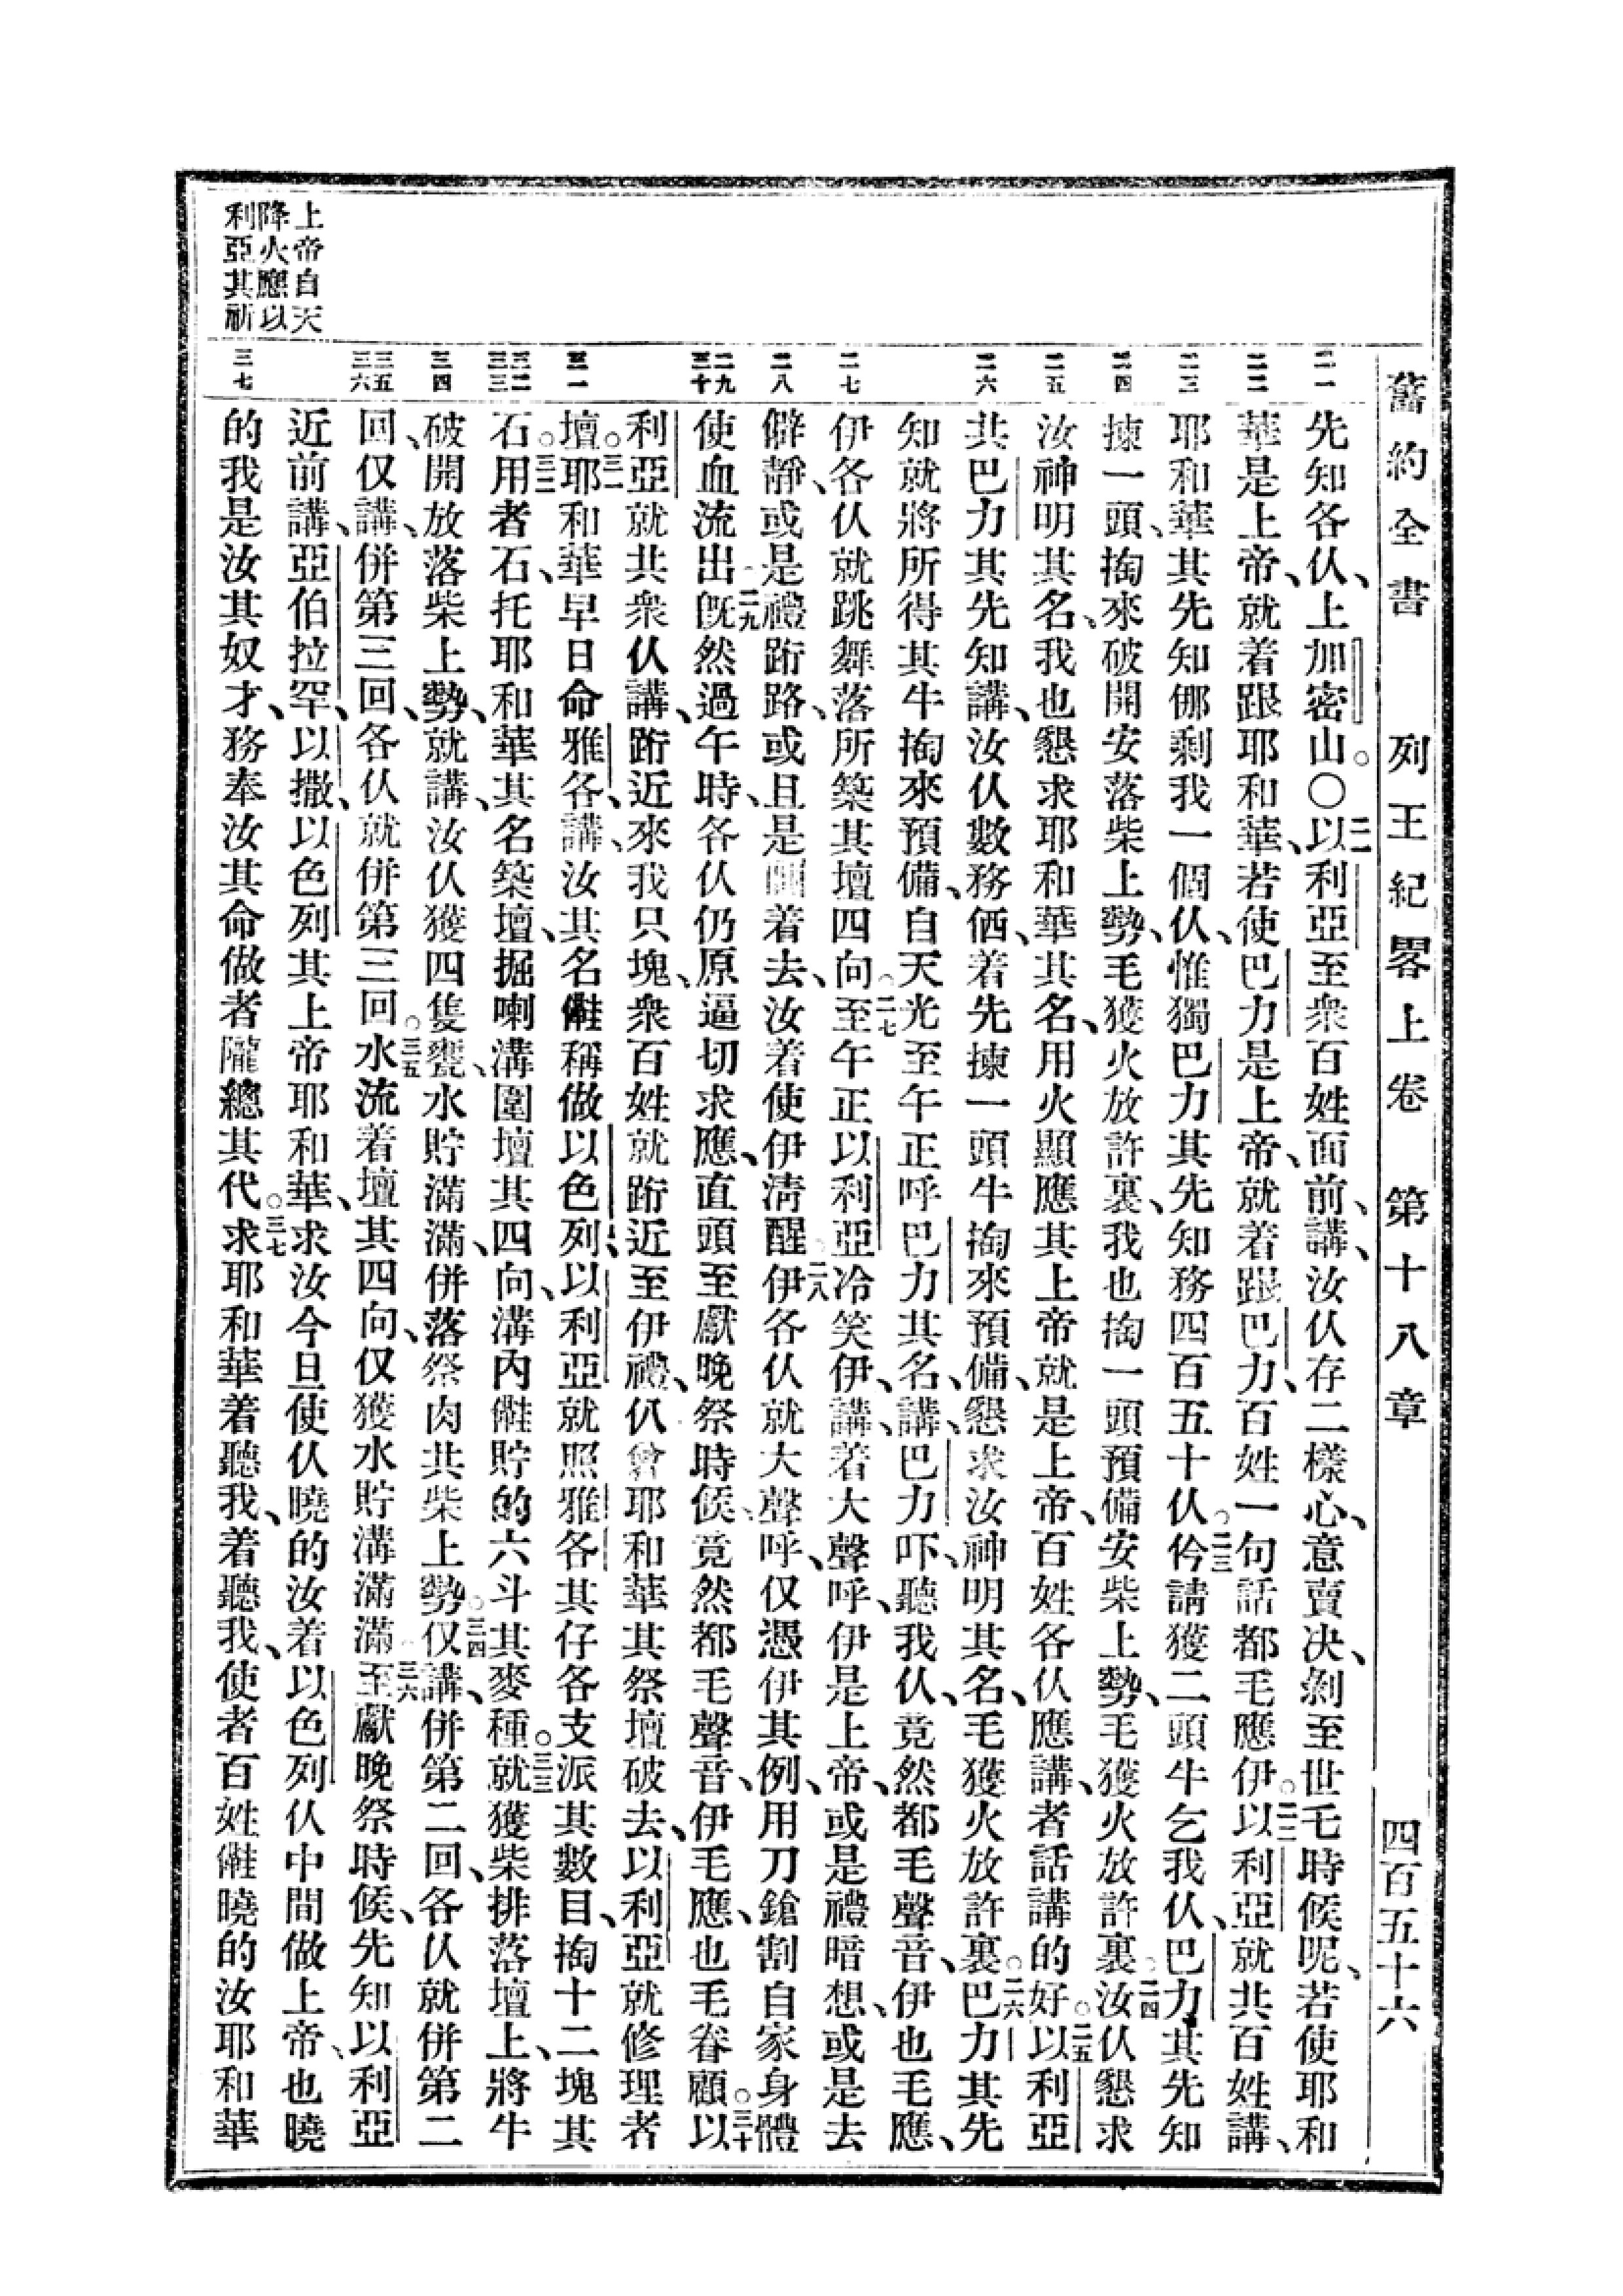 舊約全書　列王紀畧上卷　第十八章　四百五十六
先知各仈、上加密山。○二一以利亞至衆百姓面前、講、汝仈存二樣心、意賣決、剝至世毛時候呢、若使耶和
華是上帝、就着跟耶和華、若使巴力是上帝、就着跟巴力、百姓一句話都毛應伊。二二以利亞就共百姓講、
耶和華其先知㑚剩我一個仈、惟獨巴力其先知務四百五十仈。二三仱請獲二頭牛乞我仈、巴力其先知
揀一頭、掏來破開安落柴上勢、毛獲火放許裏、我也掏一頭預備安柴上勢、毛獲火放許裏。二四汝仈懇求
汝神明其名、我也懇求耶和華其名、用火顯應其上帝就是上帝、百姓各仈應講、者話講的好。二五以利亞
共巴力其先知講、汝仈數務㐰、着先揀一頭牛掏來預備、懇求汝神明其名、毛獲火放許裏。二六巴力其先
知就將所得其牛掏來預備、自天光至午正呼巴力其名、講、巴力吓、聽我仈、竟然都毛聲音、伊也毛應、
伊各仈就跳舞落所築其壇四向。二七至午正以利亞冷笑伊、講、着大聲呼、伊是上帝、或是禮暗想、或是去
僻靜、或是禮跨路、或且是着去、汝着使伊淸醒。二八伊各仈就大聲呼、仅憑伊其例、用刀鎗割自家身體
使血流出。二九旣然過午時、各仈仍原逼切求應、直頭至獻晚祭時候、竟然都毛聲音、伊毛應、也毛眷顧。三十以
利亞就共衆仈講、跨近來我只塊、衆百姓就跨近至伊禮、仈曾耶和華其祭壇破去、以利亞就修理者
壇。三一耶和華早日命雅各、講、汝其名稱做以色列、以利亞就照雅各其仔各支派其數目、掏十二塊其
石。三二用者石、托耶和華其名築壇、掘喇溝圍壇其四向、溝內貯的六斗其麥種。三三就獲柴排落壇上、將牛
破開放落柴上勢、就講、汝仈獲四隻甕、水貯滿滿、併落祭肉共柴上勢。三四仅講、併第二回、各仈就併第二
回、仅講、併第三回、各仈就併第三回。三五水流着壇其四向、仅獲水貯溝滿滿。三六至獻晚祭時候、先知以利亞
近前講、亞伯拉罕、以撒、以色列其上帝耶和華、求汝今旦使仈曉的汝着以色列仈中間做上帝、也曉
的我是汝其奴才、務奉汝其命做者隴總其代。三七求耶和華着聽我、着聽我、使者百姓曉的汝耶和華
二一
二二
二三
二四
二五
二六
二七
二八
二九
三十
三一
三二
三三
三四
三五
三六
三七
上帝自天
降火應以
利亞其祈